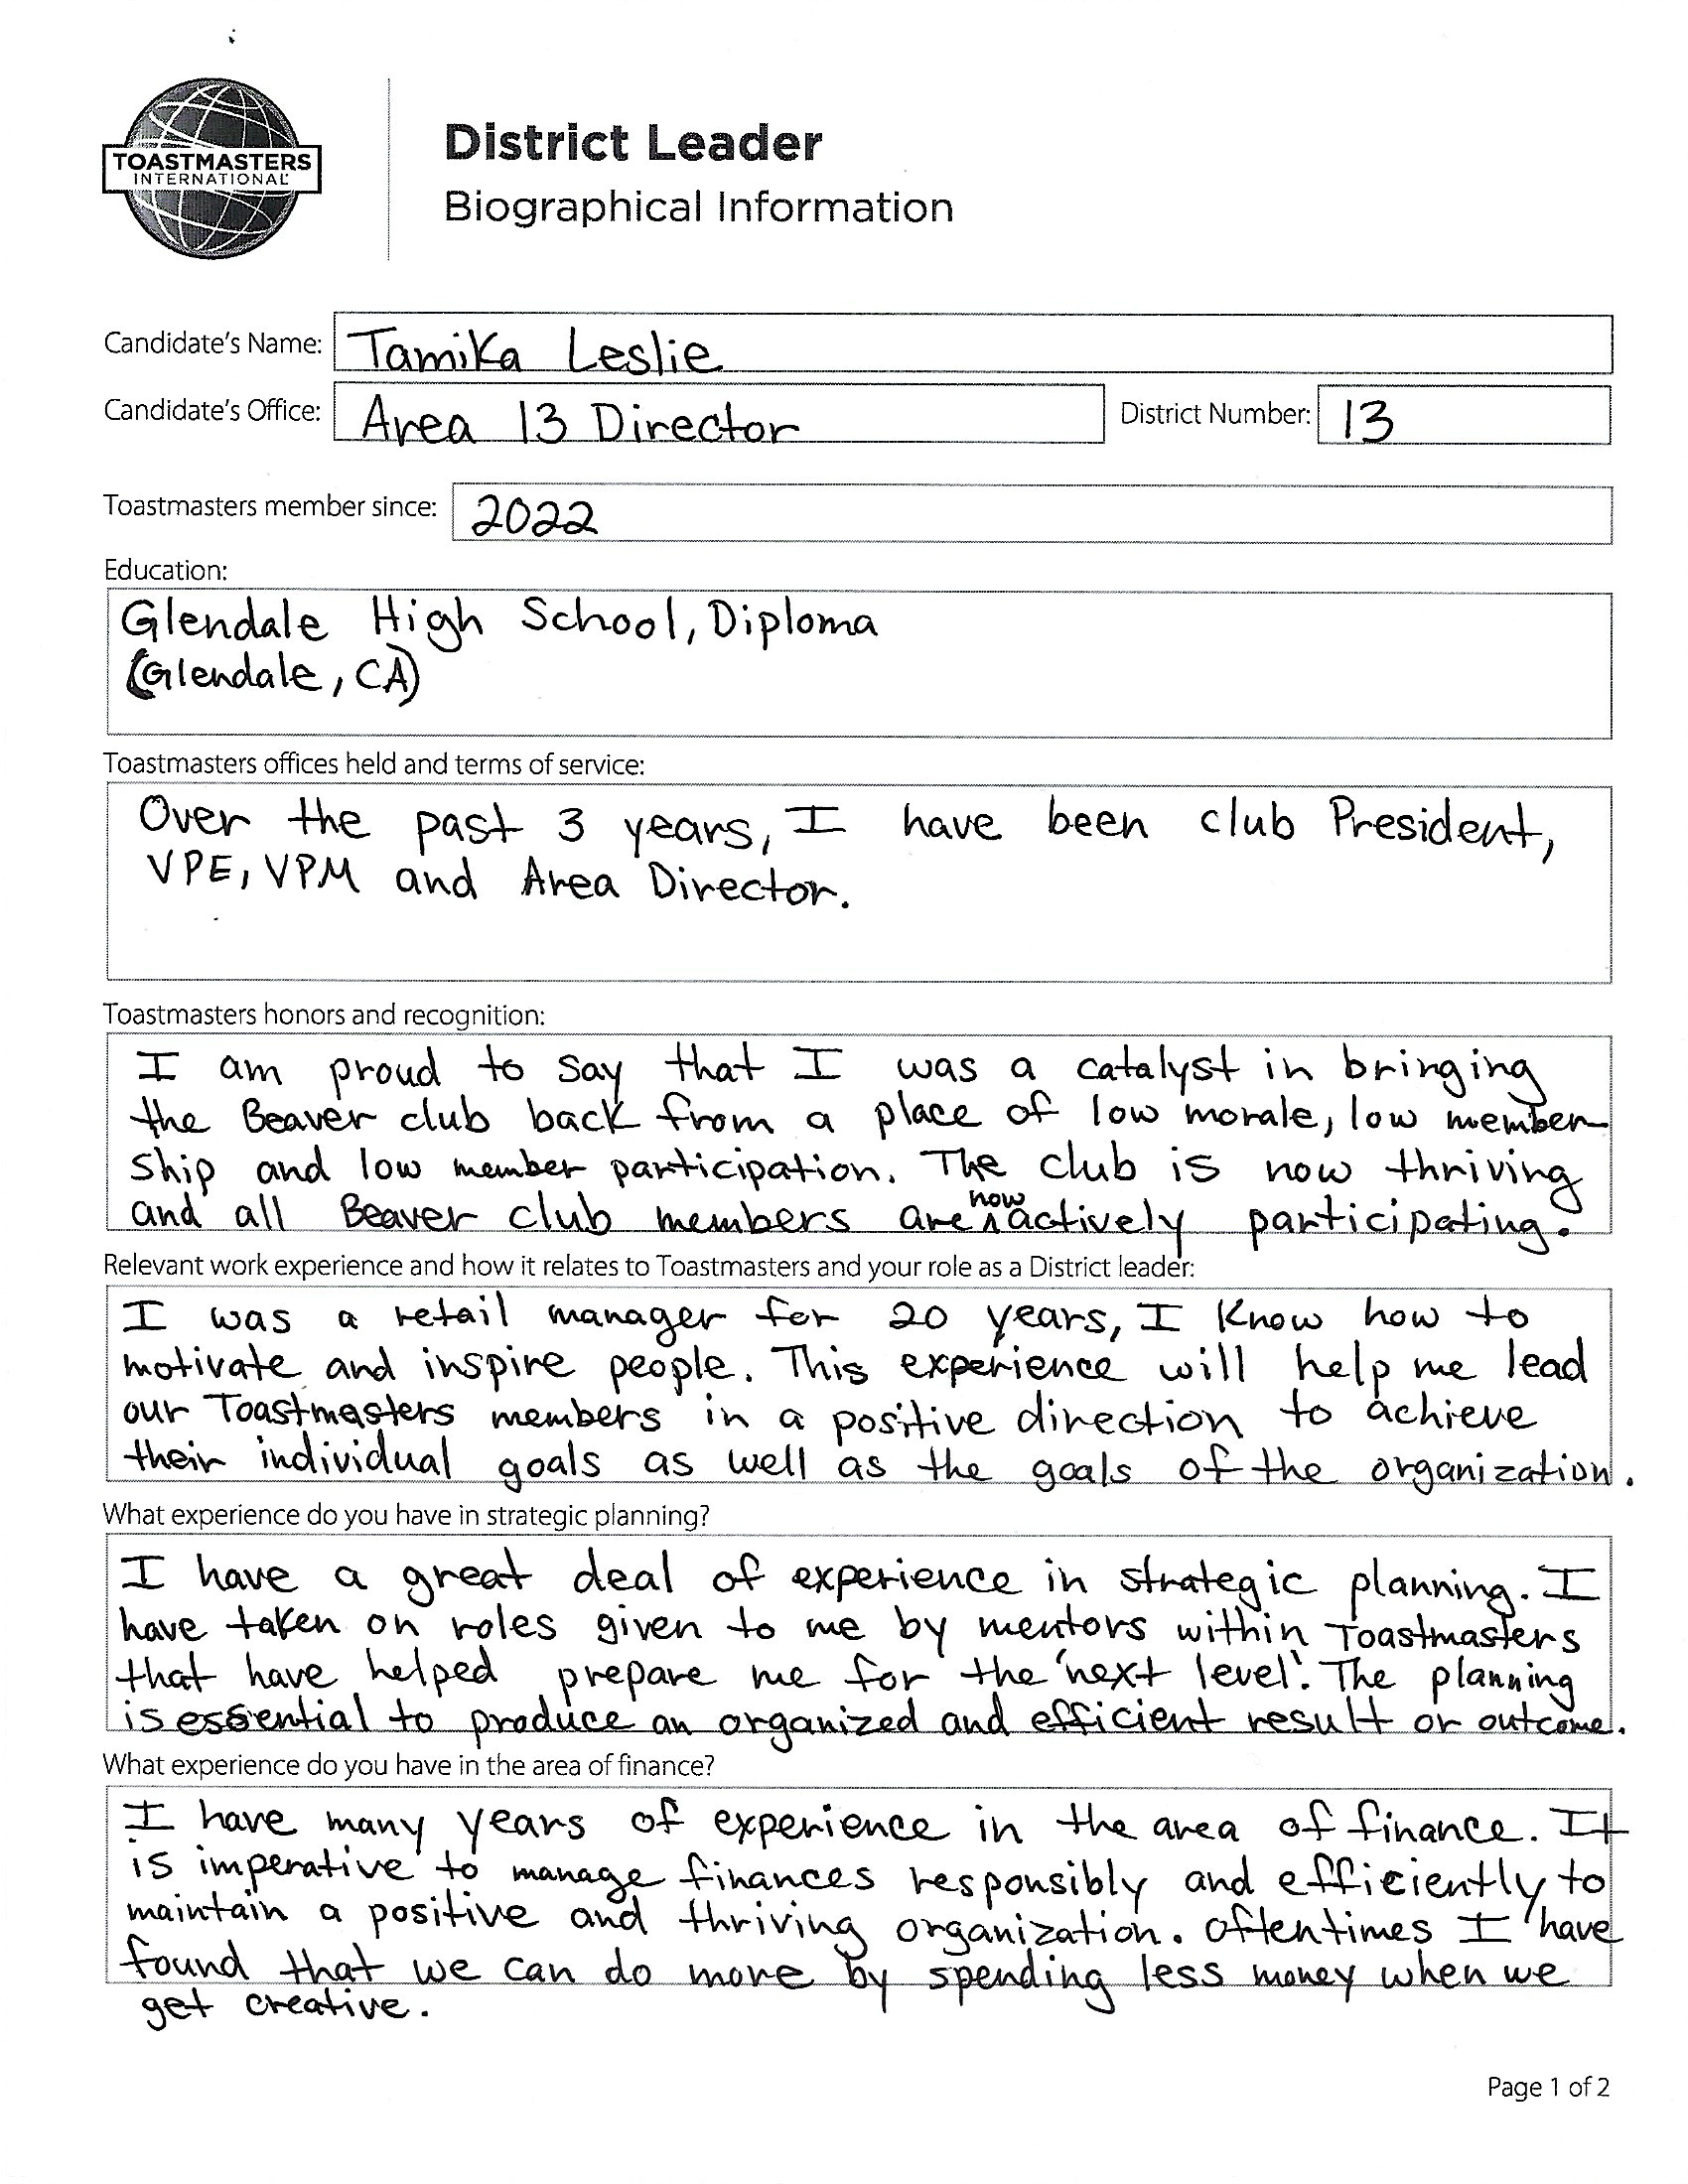 TOASTMASTERS
INTERNATIONAL
District Leader
Biographical Information
Candidate's Name: Tamika Leslie
Candidate's Office: Area 13 Director District Number: 13
Toastmasters member since: 2022
Education:
Glendale High School, Diploma
(Glendale, CA)
Toastmasters offices held and terms of service:
Over the past 3 years, I have been club President,
VPE, VPM and Area Director.
Toastmasters honors and recognition:
I am proud to say that I was a catalyst in bringing
the Beaver club back from a place of low morale, low member-
ship and low member participation. The club is now thriving
and all Beaver club members are now actively participating.
Relevant work experience and how it relates to Toastmasters and your role as a District leader:
I was a retail manager for 20 years, I know how to
motivate and inspire people. This experience will help me lead
our Toastmasters members in a positive direction to achieve
their individual goals as well as the goals of the organization.
What experience do you have in strategic planning?
I have a great deal of experience in strategic planning. I
have taken on roles given to me by mentors within Toastmasters
that have helped prepare me for the 'next level'. The planning
is essential to produce an organized and efficient result or outcome.
What experience do you have in the area of finance?
I have many years of experience in the area of finance. It
is imperative to manage finances responsibly and efficiently to
maintain a positive and thriving organization. Oftentimes I have
found that we can do more by spending less money when we
get creative.
Page 1 of 2